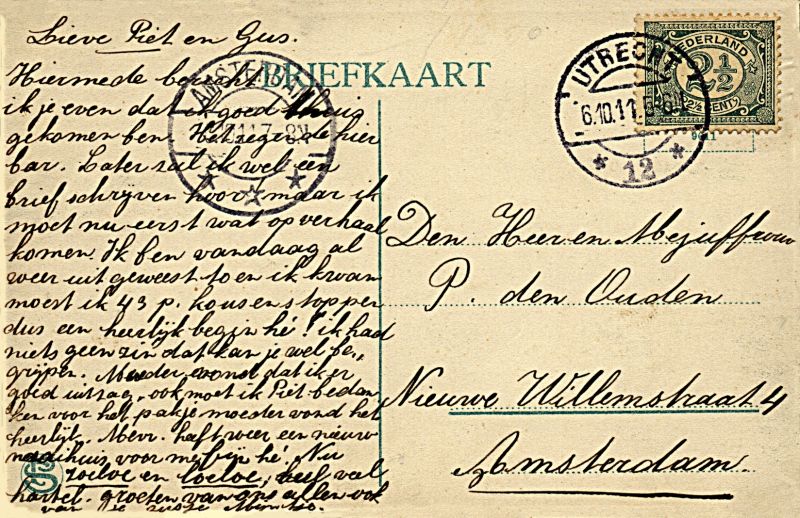 Lieve Piet en Gus.
Hiermede bericht
ik je even dat ik goed thuis
gekomen ben Het regende hier
bar. Later zal ik wel een
brief schrijven hoor, maar ik
moet nu eerst wat op verhaal
komen. Ik ben vandaag al
weer uit geweest toen ik kwam
moest ik 43 p. kousen stoppen
dus een heerlijk begin hé! ik had
niets geen zin dat kan je wel be„
grijpen. Moeder vond dat ik er
goed uitzag, ook moet ik Piet bedan
ken voor het pakje moeder vond het
heerlijk. Mevr. heeft weer een nieuw
naaihuis voor mij bij hé. Nu
en veel
hartel. groeten van ons allen ook
van je zusje
BRIEFKAART
AMSTERDAM
UTRECHT
6.10.11
12
NEDERLAND
2½
2½ CENT
Den Heer en Mejuffrouw
P. den Ouden
Nieuwe Willemstraat 4
Amsterdam.